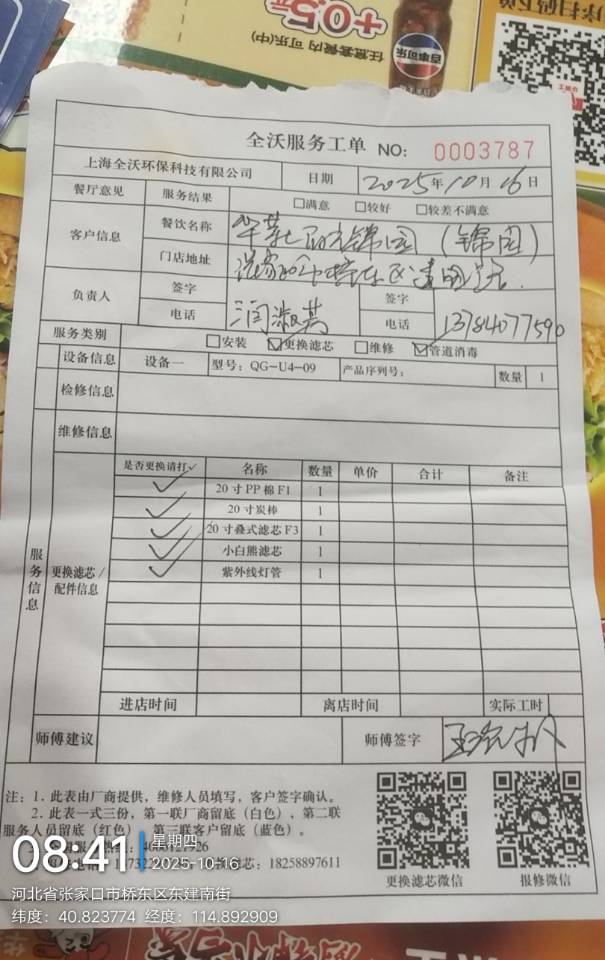 +0.5元
任意套餐内 可乐(中)
百事可乐
序扫码下
全沃服务工单 NO: 0003787
上海全沃环保科技有限公司 日期 2025年10月16日
餐厅意见 服务结果 □满意 □较好 □较差不满意
客户信息 餐饮名称 华莱士 锦园 (锦园)
门店地址 张家口市桥东区
负责人 签字 闫淑英 签字
电话 电话 13784077590
服务类别 □安装 ☑更换滤芯 □维修 ☑管道消毒
设备信息 设备一 型号: QG-U4-09 产品序列号: 数量 1
检修信息
维修信息
服务信息
更换滤芯/配件信息
是否更换请打√ 名称 数量 单价 合计 备注
✓ 20寸PP棉F1 1
✓ 20寸炭棒 1
✓ 20寸叠式滤芯F3 1
✓ 小白熊滤芯 1
✓ 紫外线灯管 1
进店时间 离店时间 实际工时
师傅建议 师傅签字
注: 1. 此表由厂商提供, 维修人员填写, 客户签字确认。
2. 此表一式三份, 第一联厂商留底 (白色), 第二联
服务人员留底 (红色), 第三联客户留底 (蓝色)。
18258897611
更换滤芯微信 报修微信
08:41 星期四
2025-10-16
河北省张家口市桥东区东建南街
纬度: 40.823774 经度: 114.892909